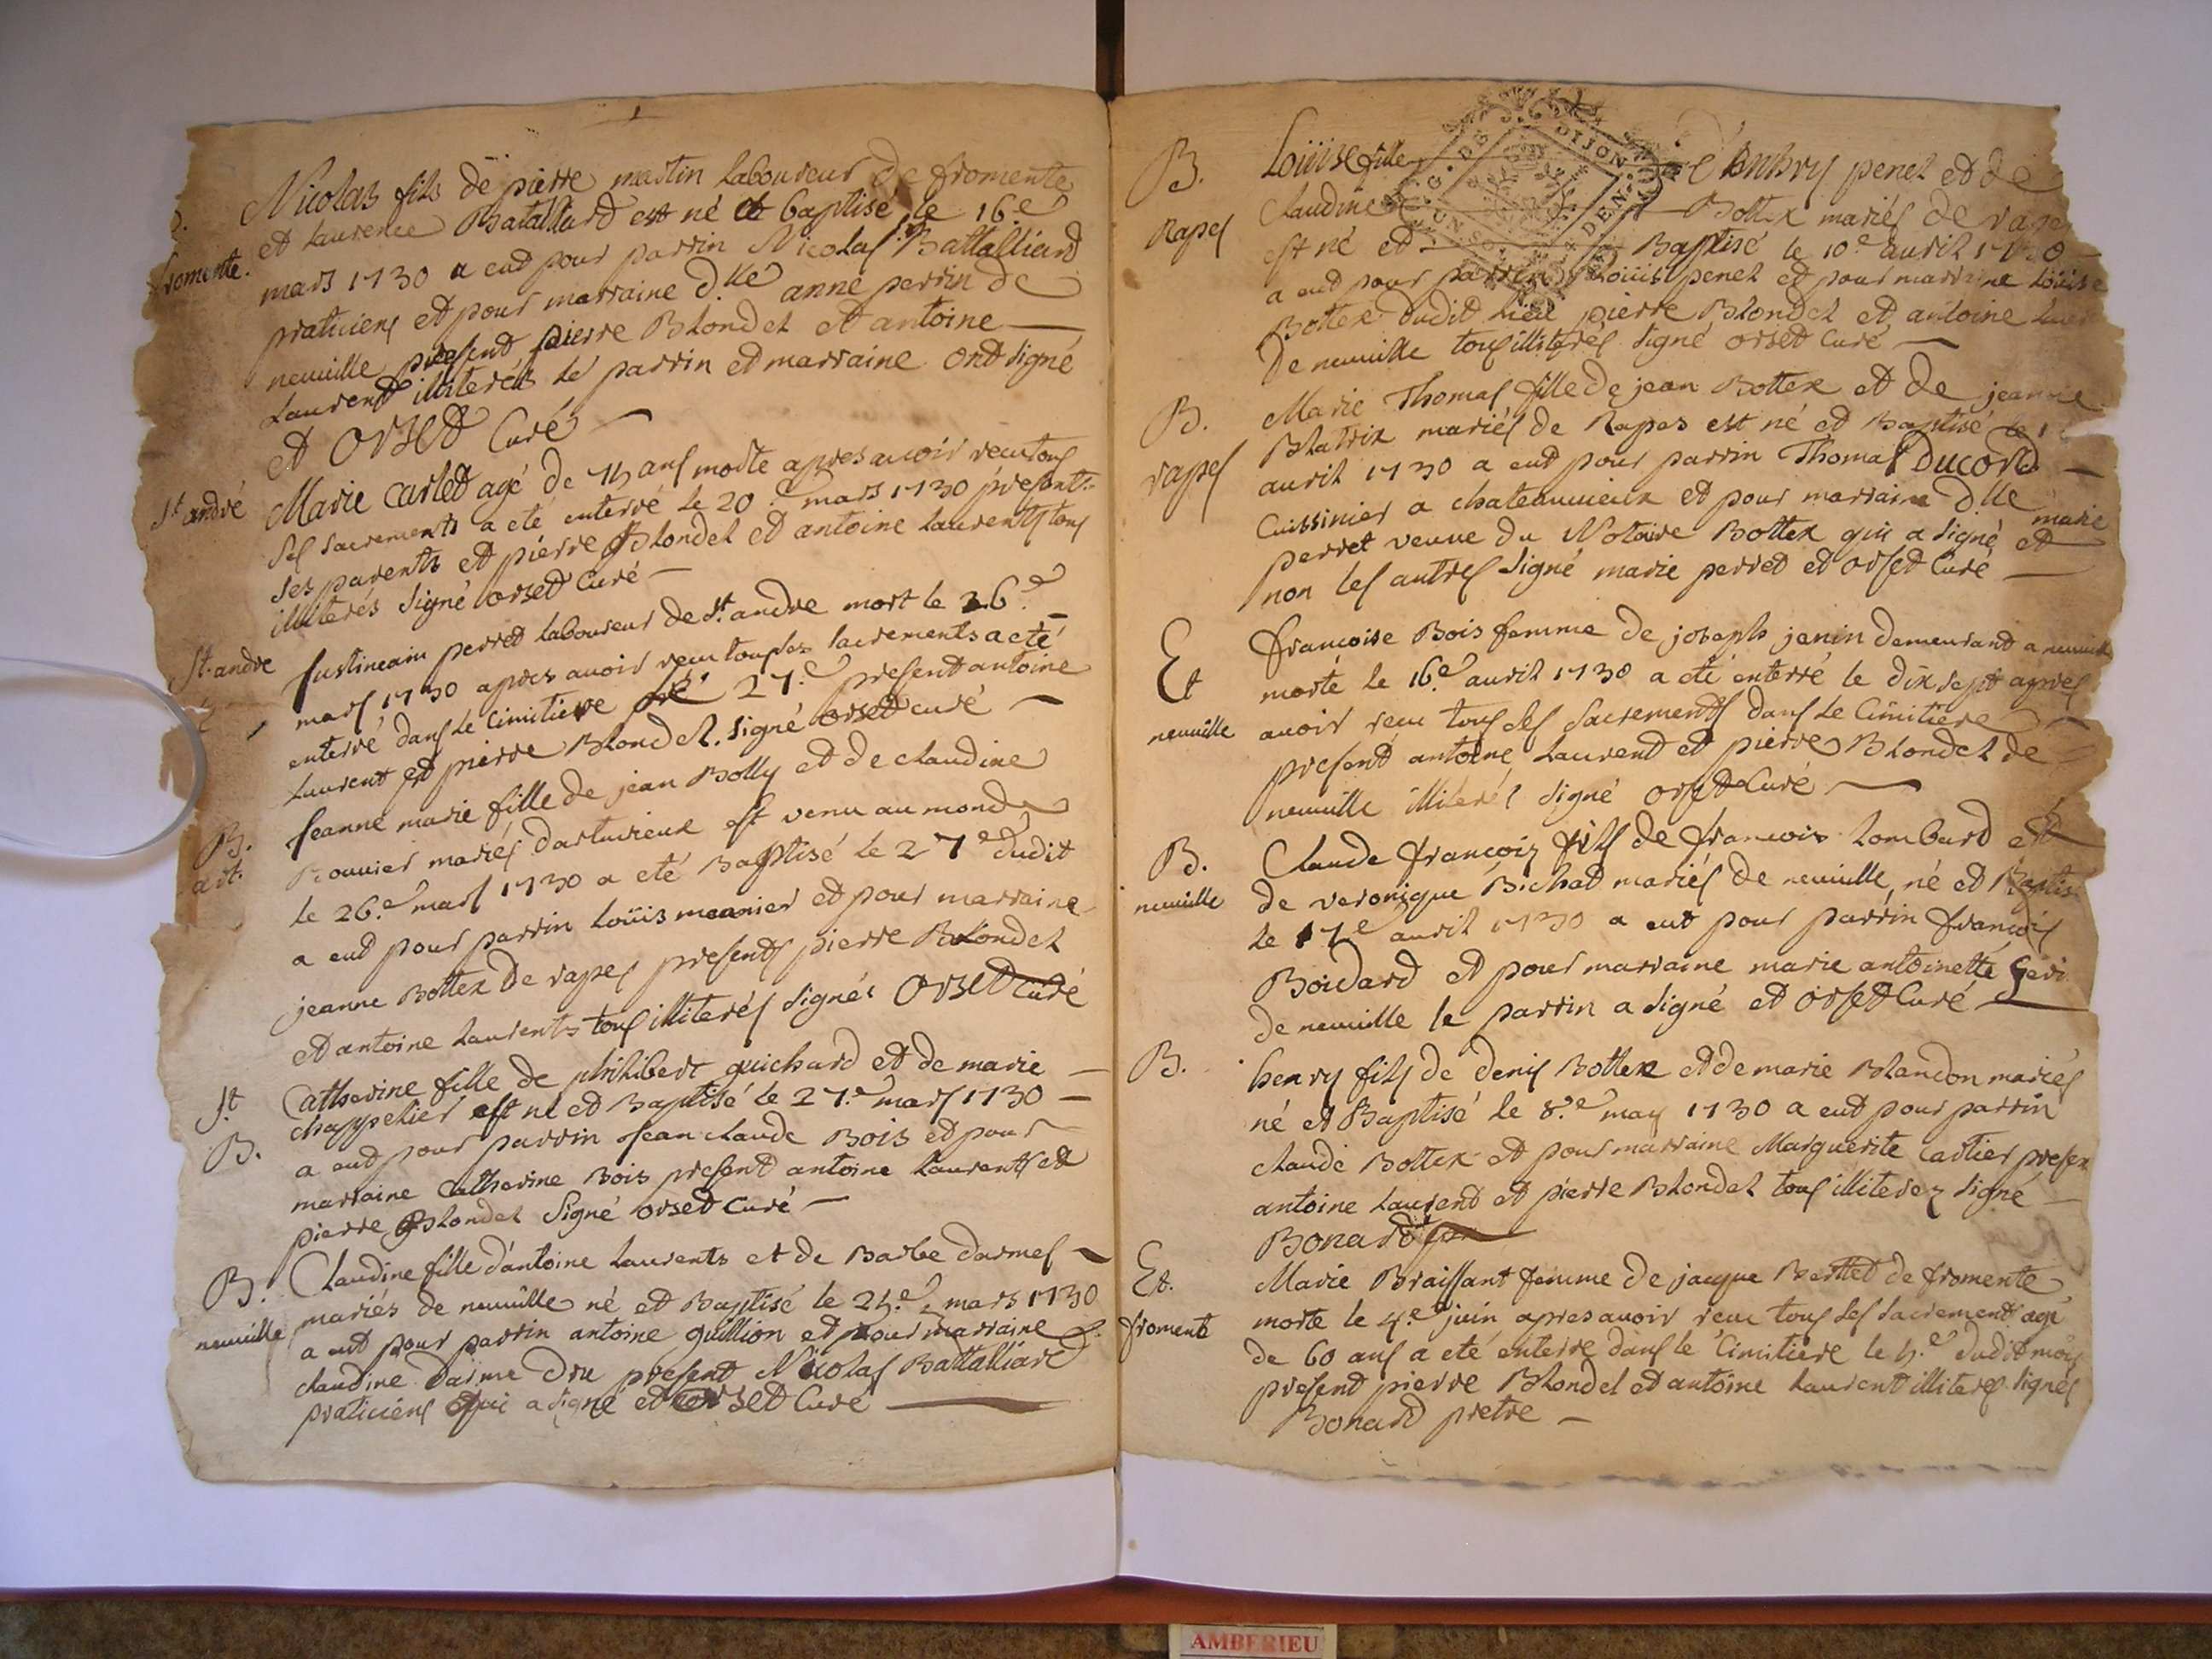 Nicolas fils de pierre martin laboureur de fromente
et laurence Batalliard est né et baptisé le 16.e
fromente.
mars 1730 a eut pour parrin Nicolas Battalliard
praticien et pour marraine d.lle anne perrin de
neuville present pierre Blondel et antoine
Laurent illiterés le parrin et marraine ont signé
et orset Curé
St andré
Marie Carlet agé de 75 ans morte apres avoir receu tous
ses sacrements a eté enterré le 20.e mars 1730 presents
ses parents et pierre Blondel et antoine Laurents tous
illiterés signé orset Curé
St. andre
perret laboureur de St. andre mort le 26.e
mars 1730 apres avoir receu tous les sacrements a eté
enterré dans le cimitiere le 27.e present antoine
Laurent et pierre Blondel. signé orset curé
B.
art.
Jeanne marie fille de jean Bolly et de claudine
mariés dartuvieux est venu au monde
le 26.e mars 1730 a eté Baptisé le 27.e dudit
a eut pour parrin Loüis meanier et pour marraine
jeanne Bottex de rapes presents pierre Blondel
et antoine Laurents tous illiterés signés orset Curé
St
B.
Catherine fille de philibert guichard et de marie
chappelier est né et Baptisé le 27.e mars 1730
a eut pour parrin Jean claude Bois et pour
marraine Catherine Bois present antoine Laurents et
pierre Blondel signé orset curé
B.
neuville
Claudine fille d'antoine Laurents et de Barbe darmes
mariés de neuville né et Baptisé le 25.e mars 1730
a eut pour parrin antoine guillion et pour marraine
claudine darme dru present Nicolas Battalliard
praticiens qui a signé et orset Curé
B.
Rapes
Loüise fille d'Anbry penet et de
Claudine Bottex mariés de rapes
est né et Baptisé le 10.e avril 1730
a eut pour parrin Loüis penet et pour marraine Loüise
Bottex dudit lieu pierre Blondel et antoine
de neuville tous illiterés signé orset Curé
B.
rapes
Marie Thomas fille de jean Bottex et de jeanne
Blatrix mariés de Rapes est né et Baptisé le
avril 1730 a eut pour parrin Thomas Ducord
Cuissinier a chateauvieux et pour marraine d.lle marie
perret veuve du Notaire Bottex qui a signé et
non les autres signé marie perret et orset Curé
Et
neuville
françoise Bois femme de joseph janin demeurant a neuville
morte le 16.e avril 1730 a eté enterré le dix sept apres
avoir receu tous ses sacrements dans le Cimitiere
present antoine Laurent et pierre Blondel de
neuville illiterés signé orset Curé
B.
neuville
Claude françois fils de francois Lombard et
de veronique Bichat mariés de neuville, né et Baptisé
le 17.e avril 1730 a eut pour parrin françois
Boidard et pour marraine marie antoinette
de neuville le parrin a signé et orset Curé
B.
henry fils de denis Bottex et de marie Blandon mariés
né et Baptisé le 8.e may 1730 a eut pour parrin
claude Bottex et pour marraine Marguerite Cartier presen
antoine Laurent et pierre Blondel tous illiterez signé
Bonard
Et.
fromente
Marie Braissant femme de jacque Berttet de fromente
morte le 4.e juin apres avoir receu tous ses sacrements agé
de 60 ans a eté enterre dans le Cimitiere le 5.e dudit mois
present pierre Blondel et antoine Laurent illiteres signés
Bonard pretre
DIJON
AMBERIEU